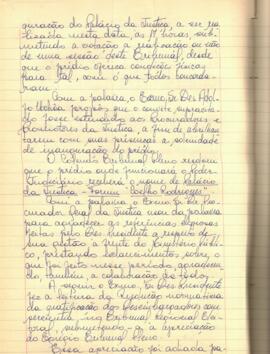 guração do Palácio da Justiça, a ser re
lizada nesta data, às 17 horas, sub-
metendo a votação a realização ou não
de uma sessão deste Tribunal, desde
que o prédio ofereça condições físicas
para tal, com o que todos concorda-
ram.
Com a palavra, o Exmo. Sr. Des.
propôs que o convite
fosse estendido aos Procuradores e
Promotores da Justiça, a fim de abrilhan-
tarem com suas presenças a solenidade
de inauguração do prédio.
O Egrégio Tribunal Pleno
que o prédio onde funcionará o Poder
Judiciário receberá o nome de Palácio
da Justiça - Forum "Coelho Rodrigues".
Com a palavra o Exmo. Sr. Dr. Pro-
curador Geral da Justiça usou da palavra
para agradecer as referências elogiosas
feitas pelo Des. Presidente a respeito de
sua gestão à frente do Ministério Públi-
co, prestando sobre o
que foi feito nesse período, agradecen-
do, também, a colaboração de todos.
A seguir o Exmo. Sr. Des. Presidente
fez a leitura da Resolução normativa
da gratificação dos Desembargadores que
pertencem ao Tribunal Regional Elei-
toral, submetendo-a à apreciação
do Egrégio Tribunal Pleno.
Essa apreciação foi adiada pa-